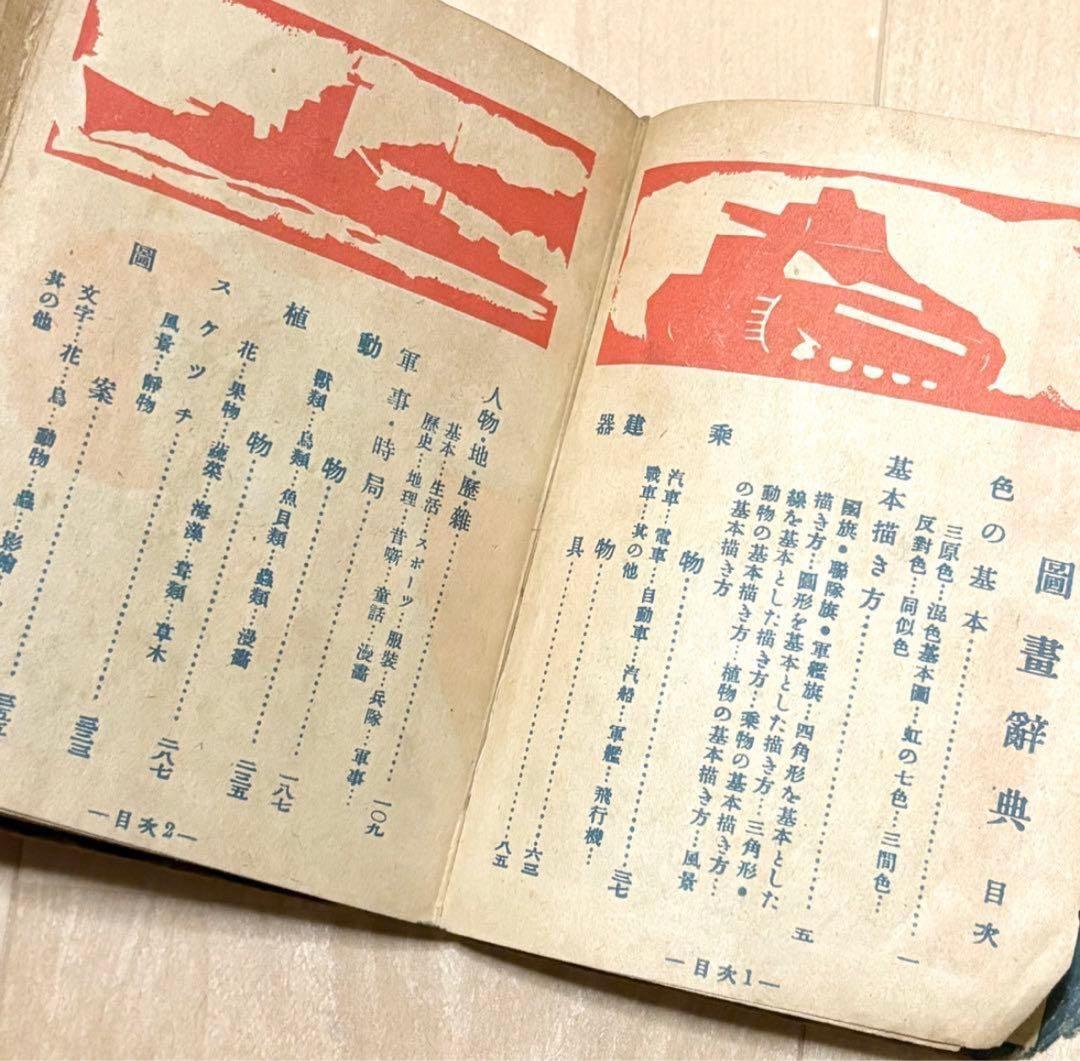 圖畫辭典 目次
色の基本……一
三原色…混色基本圖…虹の七色…三間色…
反對色…同似色
基本描き方……五
國旗・聯隊旗・軍艦旗…四角形を基本とした
描き方…圓形を基本とした描き方…三角形・
線を基本とした描き方…乘物の基本描き方…
動物の基本描き方…植物の基本描き方…風景
の基本描き方
乘物……三七
汽車…電車…自動車…汽船…軍艦…飛行機…
戰車…其の他
建物……六三
器具……八五
—目次1—
人物・地・歷・雜……一〇九
基本…生活…スポーツ…服裝…兵隊…軍事…
歷史…地理…昔噺…童話…漫畵
軍事・時局
動物……一八七
獸類…鳥類…魚貝類…蟲類…漫畵
植物……二三五
花…果物…蔬菜…海藻…茸類…草木
スケツチ……二八七
風景…靜物
圖案……三三三
文字…花…鳥…動物…蟲…影繪
其の他
—目次2—